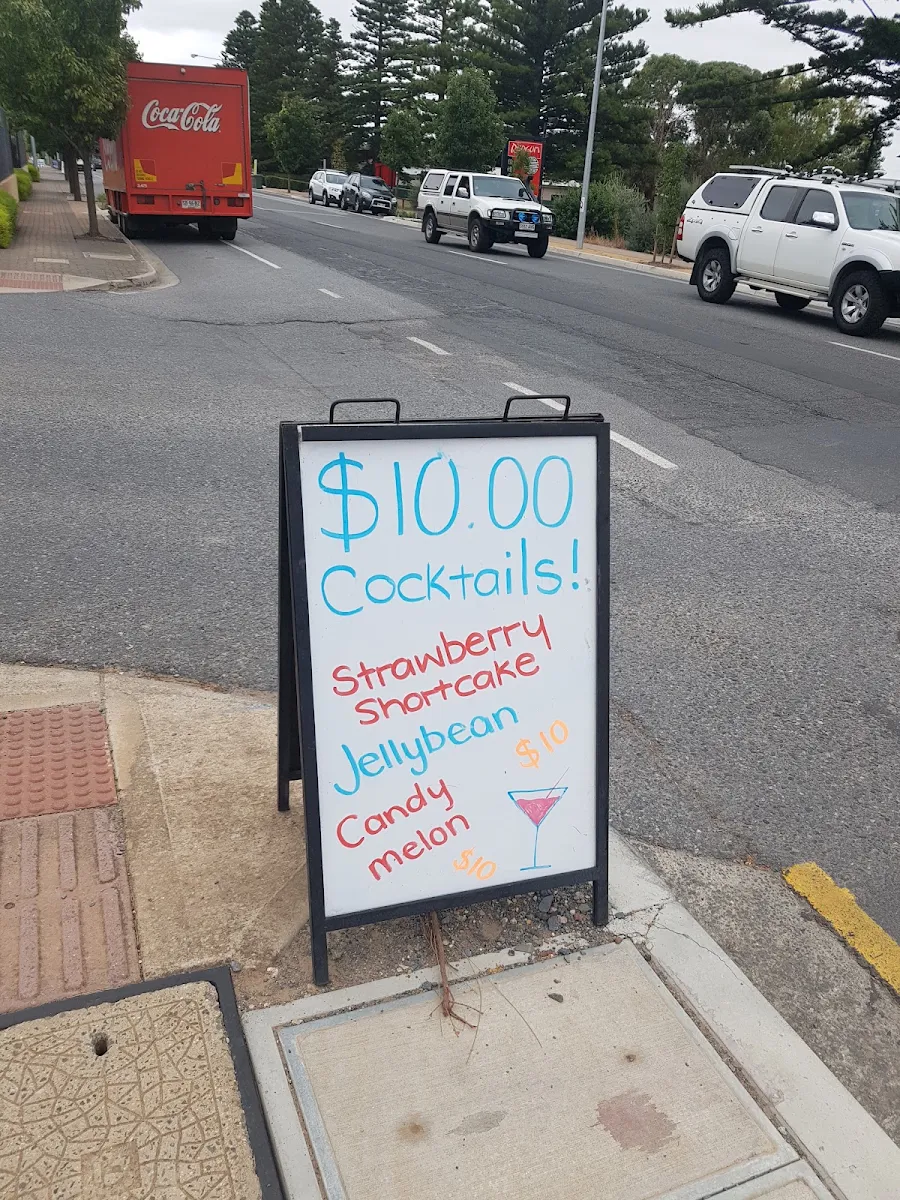 Coca-Cola
$10.00
Cocktails!
Strawberry
Shortcake
Jellybean
$10
Candy
melon
$10